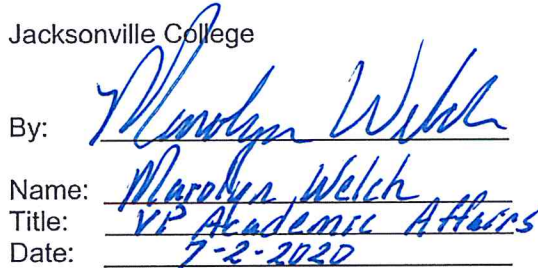 Jacksonville College
By: Marolyn Welch
Name: Marolyn Welch
Title: VP Academic Affairs
Date: 7-2-2020